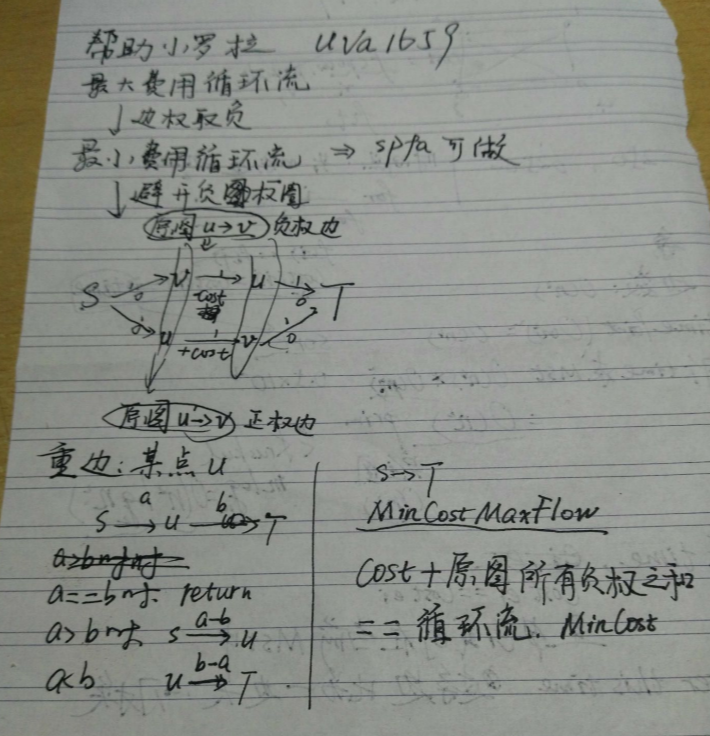 帮助小罗拉 uva1659
最大费用循环流
↓边权取负
最小费用循环流 ⇒ spfa可做
↓避开负权圈
原图u→v 负权边
S 1/0 v 1 cost u 1/0 T
u 1 +cost v 1/0
原图u→v 正权边
重边:某点u
S a→ u b→ T
a==b时 return
a>b时 s a-b→ u
a<b u b-a→ T
S→T
MinCostMaxFlow
Cost+原图所有负权之和
==循环流. MinCost